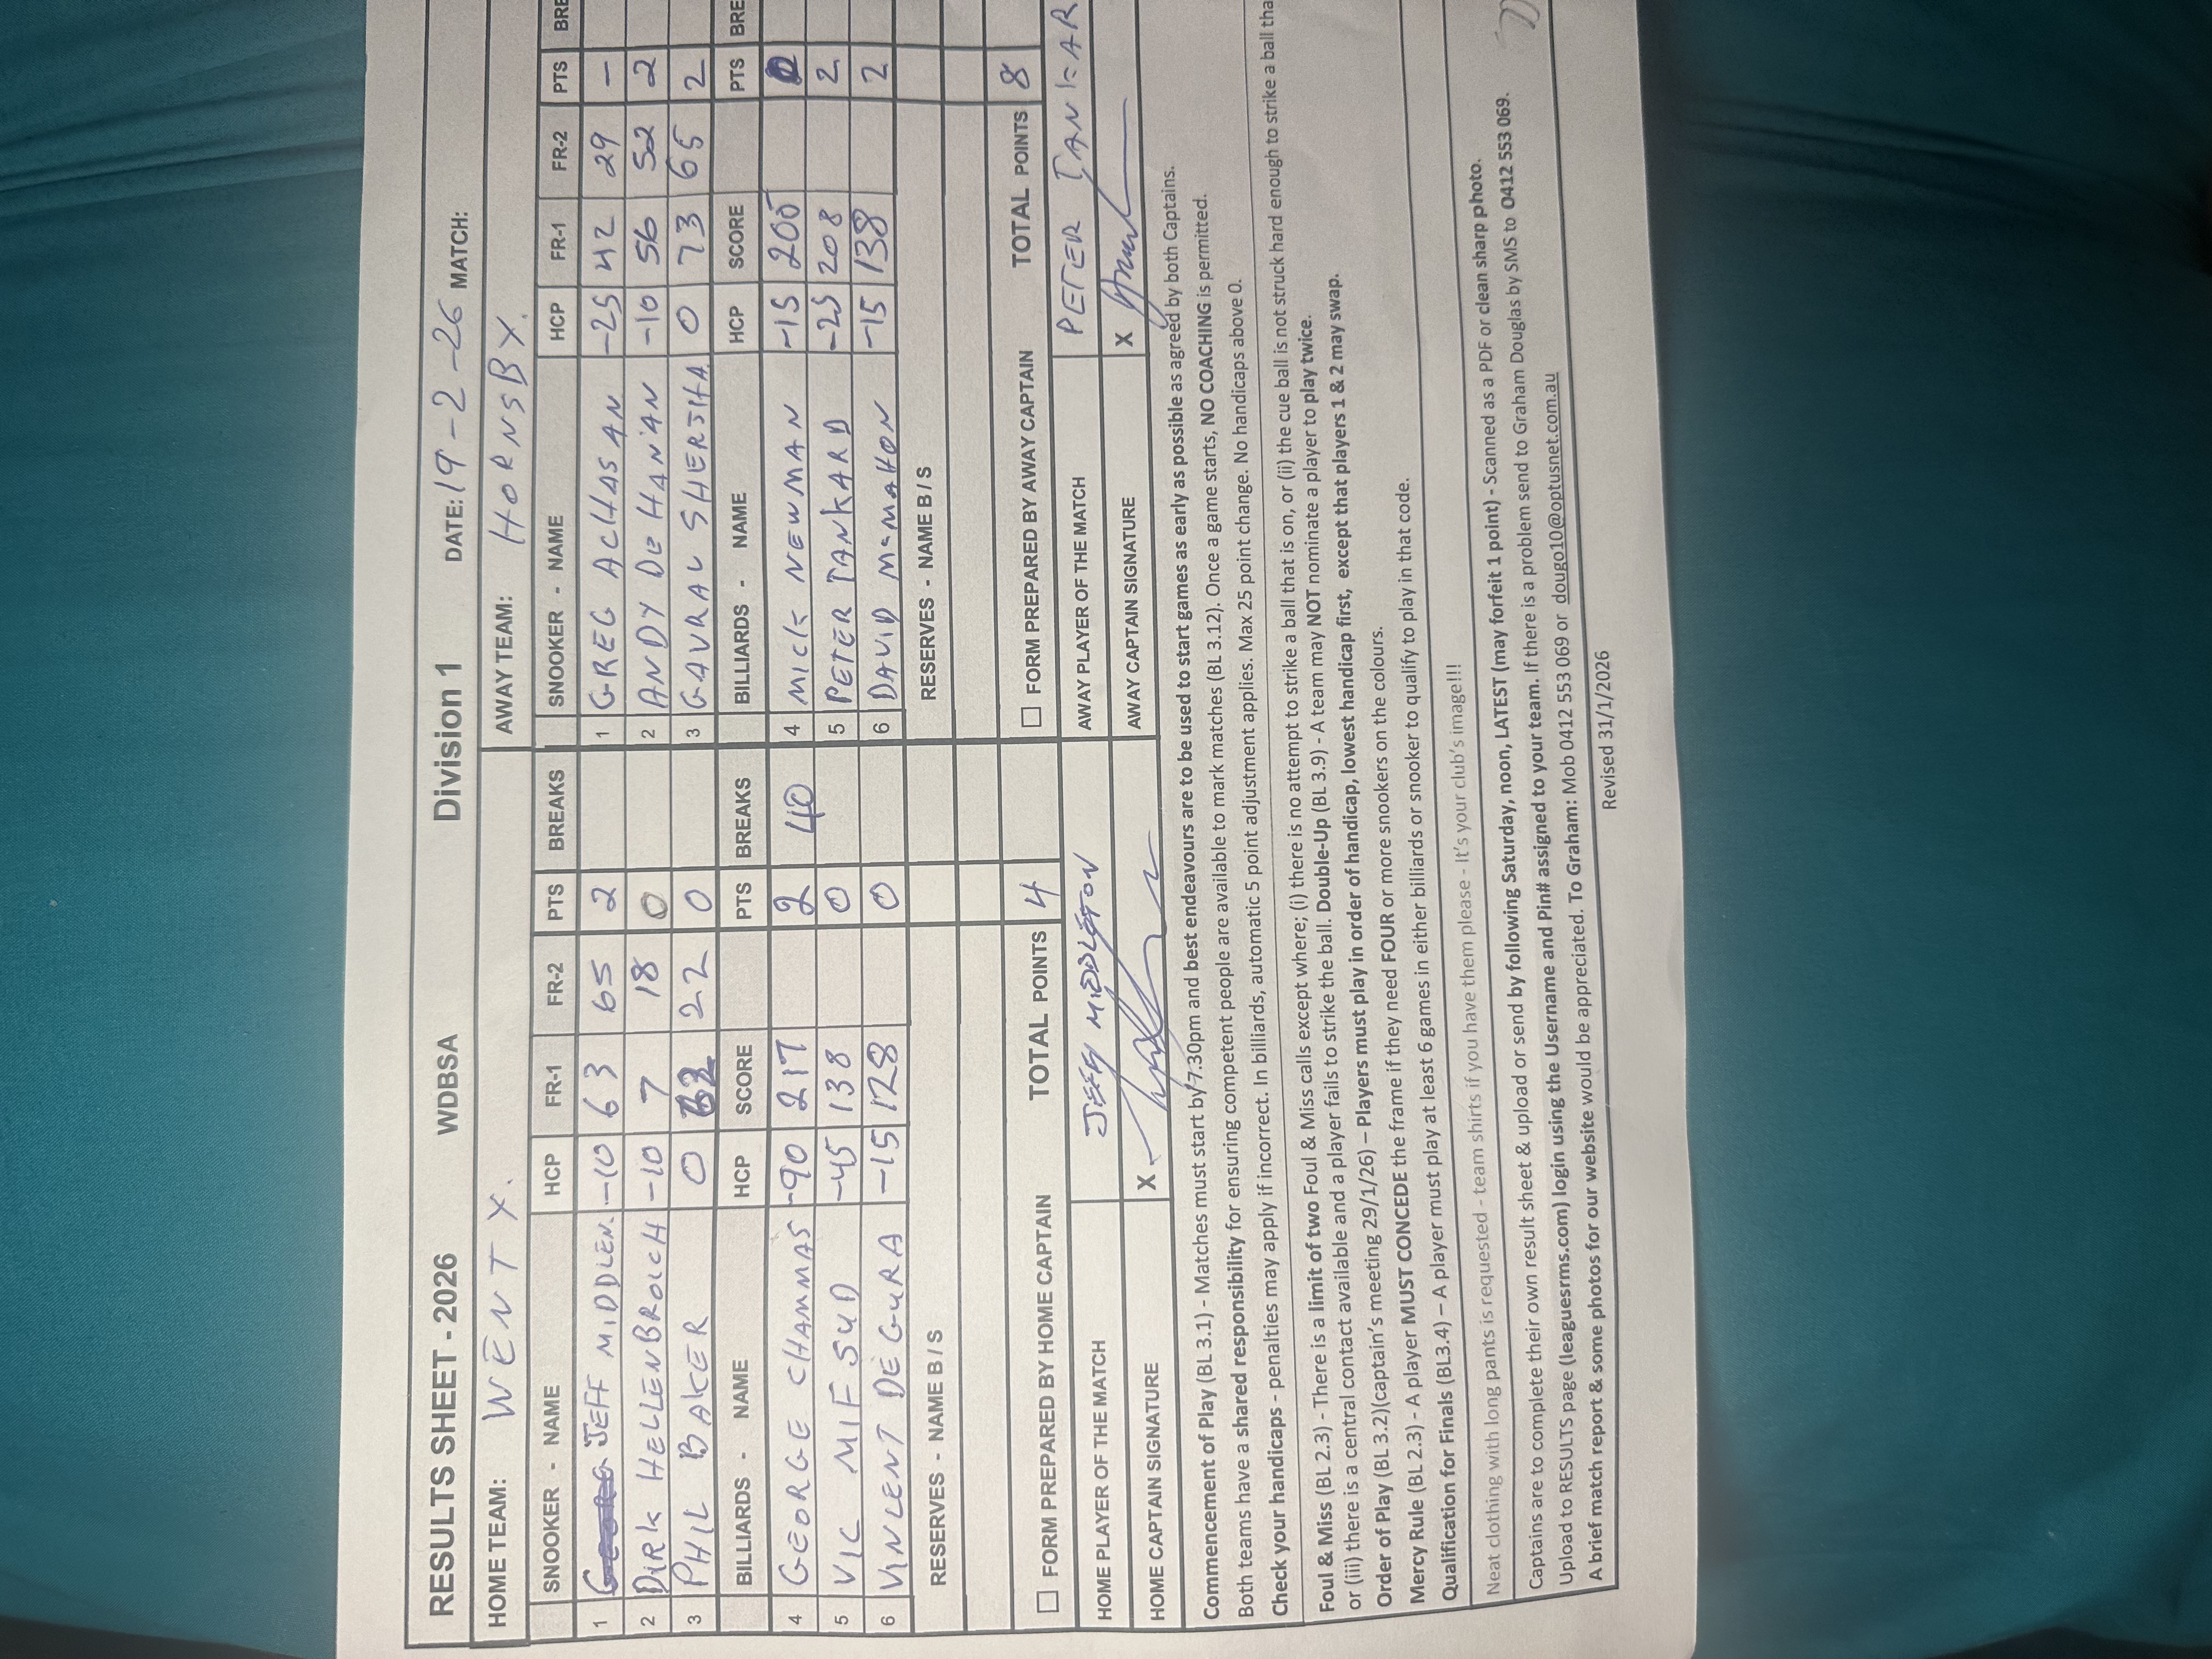 RESULTS SHEET - 2026 WDBSA Division 1 DATE: 19-2-26 MATCH:
HOME TEAM: WENTY. AWAY TEAM: HORNSBY.
SNOOKER - NAME HCP FR-1 FR-2 PTS BREAKS SNOOKER - NAME HCP FR-1 FR-2 PTS BRE
1 JEFF MIDDLEN. -10 63 65 2 1 GREG ACHASAN -25 42 29 -
2 DIRK HELLENBROICH -10 7 18 0 2 ANDY DE HANAN -10 56 52 2
3 PHIL BAKER 0 22 0 3 GAVRAL SHERSHA 0 73 65 2
BILLIARDS - NAME HCP SCORE PTS BREAKS BILLIARDS - NAME HCP SCORE PTS BRE
4 GEORGE CHAMMAS -90 217 2 40 4 MICK NEWMAN -15 200 0
5 VIC MIFSUD -45 138 0 5 PETER TANKARD -25 208 2
6 VINCENT DEGURA -15 128 0 6 DAVID McMAHON -15 138 2
RESERVES - NAME B / S RESERVES - NAME B / S
FORM PREPARED BY HOME CAPTAIN TOTAL POINTS 4 FORM PREPARED BY AWAY CAPTAIN TOTAL POINTS 8
HOME PLAYER OF THE MATCH JEFF MIDDLETON AWAY PLAYER OF THE MATCH PETER TANKAR
HOME CAPTAIN SIGNATURE X AWAY CAPTAIN SIGNATURE X
Commencement of Play (BL 3.1) - Matches must start by 7.30pm and best endeavours are to be used to start games as early as possible as agreed by both Captains.
Both teams have a shared responsibility for ensuring competent people are available to mark matches (BL 3.12). Once a game starts, NO COACHING is permitted.
Check your handicaps - penalties may apply if incorrect. In billiards, automatic 5 point adjustment applies. Max 25 point change. No handicaps above 0.
Foul & Miss (BL 2.3) - There is a limit of two Foul & Miss calls except where; (i) there is no attempt to strike a ball that is on, or (ii) the cue ball is not struck hard enough to strike a ball tha
or (iii) there is a central contact available and a player fails to strike the ball. Double-Up (BL 3.9) - A team may NOT nominate a player to play twice.
Order of Play (BL 3.2)(captain's meeting 29/1/26) – Players must play in order of handicap, lowest handicap first, except that players 1 & 2 may swap.
Mercy Rule (BL 2.3) - A player MUST CONCEDE the frame if they need FOUR or more snookers on the colours.
Qualification for Finals (BL3.4) – A player must play at least 6 games in either billiards or snooker to qualify to play in that code.
Neat clothing with long pants is requested - team shirts if you have them please - It's your club's image!!!
Captains are to complete their own result sheet & upload or send by following Saturday, noon, LATEST (may forfeit 1 point) - Scanned as a PDF or clean sharp photo.
Upload to RESULTS page (leaguesrms.com) login using the Username and Pin# assigned to your team. If there is a problem send to Graham Douglas by SMS to 0412 553 069.
A brief match report & some photos for our website would be appreciated. To Graham: Mob 0412 553 069 or dougo10@optusnet.com.au
Revised 31/1/2026